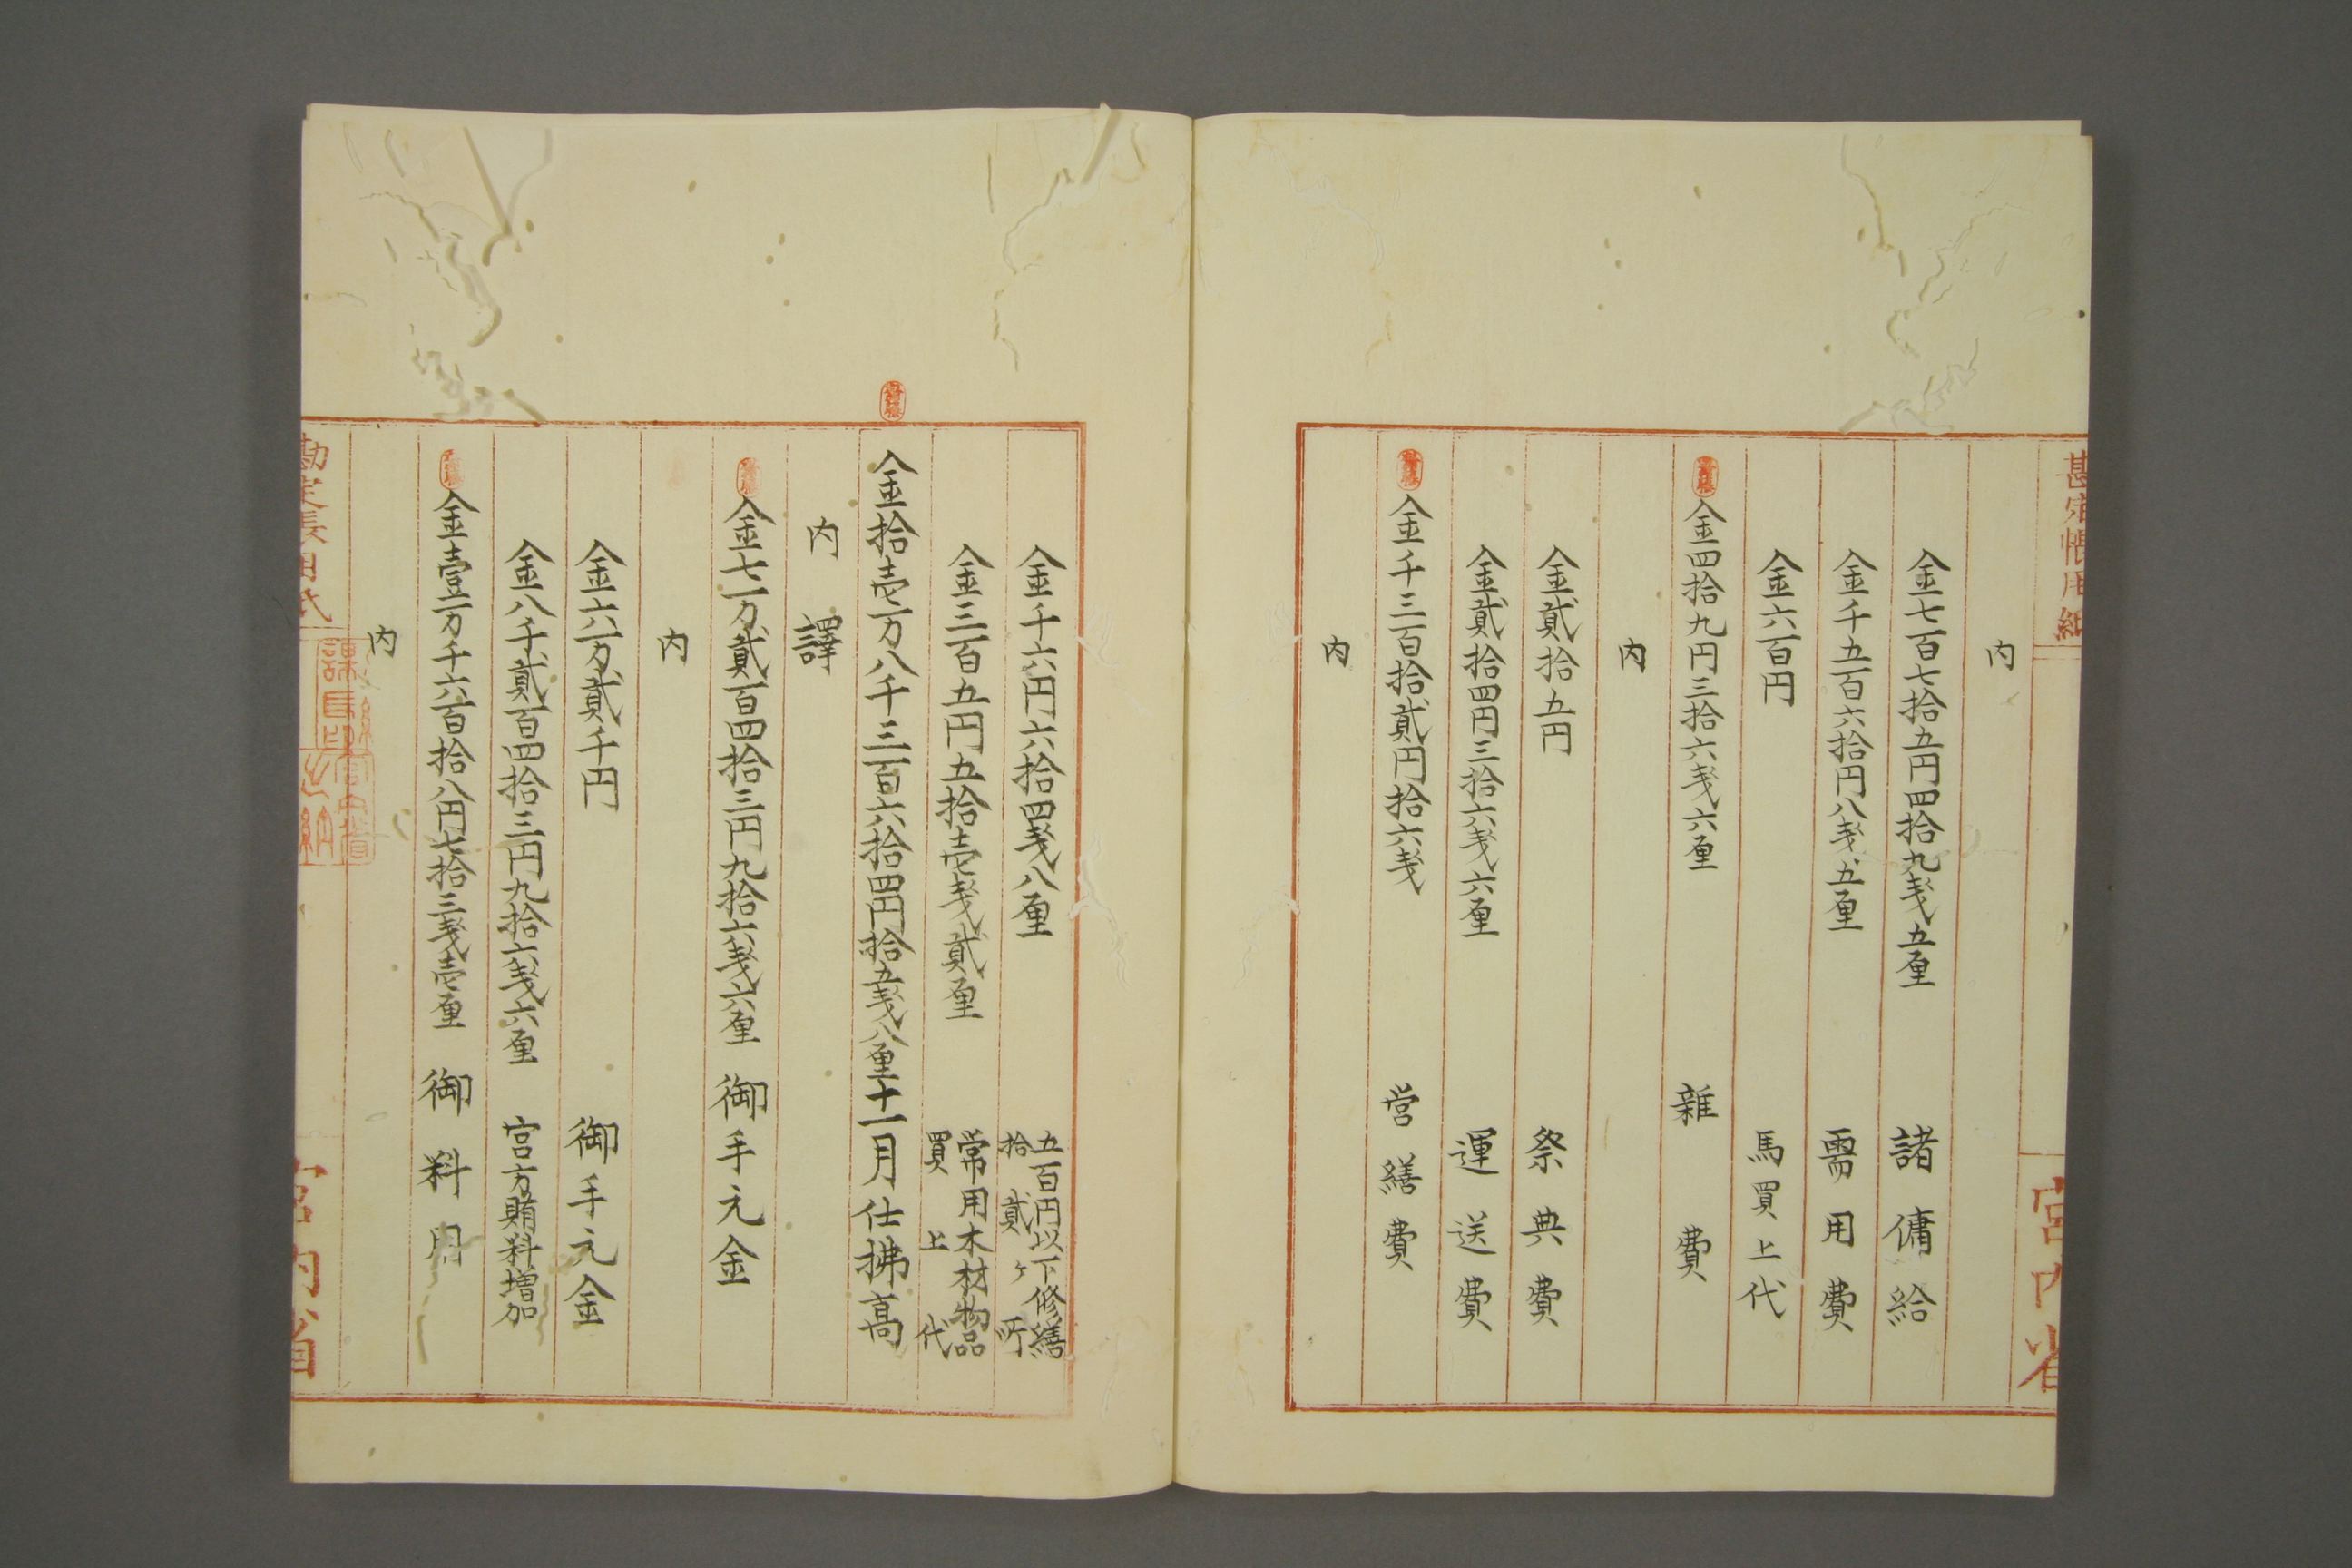 勘定帳用紙
宮内省
内
金七百七拾五円四拾九戔五厘 諸傭給
金千五百六拾円八戔五厘 需用費
金六百円 馬買上代
金四拾九円三拾六戔六厘 雑費
内
金貳拾五円 祭典費
金貳拾四円三拾六戔六厘 運送費
金千三百拾貳円拾六戔 営繕費
内
金千六円六拾四戔八厘 五百円以下修繕
拾貳ヶ所
金三百五円五拾壱戔貳厘 常用木材物品
買上代
金拾壱万八千三百六拾四円拾五戔八厘十一月仕拂高
内譯
金七万貳百四拾三円九拾六戔六厘 御手元金
内
金六万貳千円 御手元金
金八千貳百四拾三円九拾六戔六厘 宮方賄料増加
金壹万千六百拾八円七拾三戔壱厘 御料用
内
勘定帳用紙
宮内省
課長印